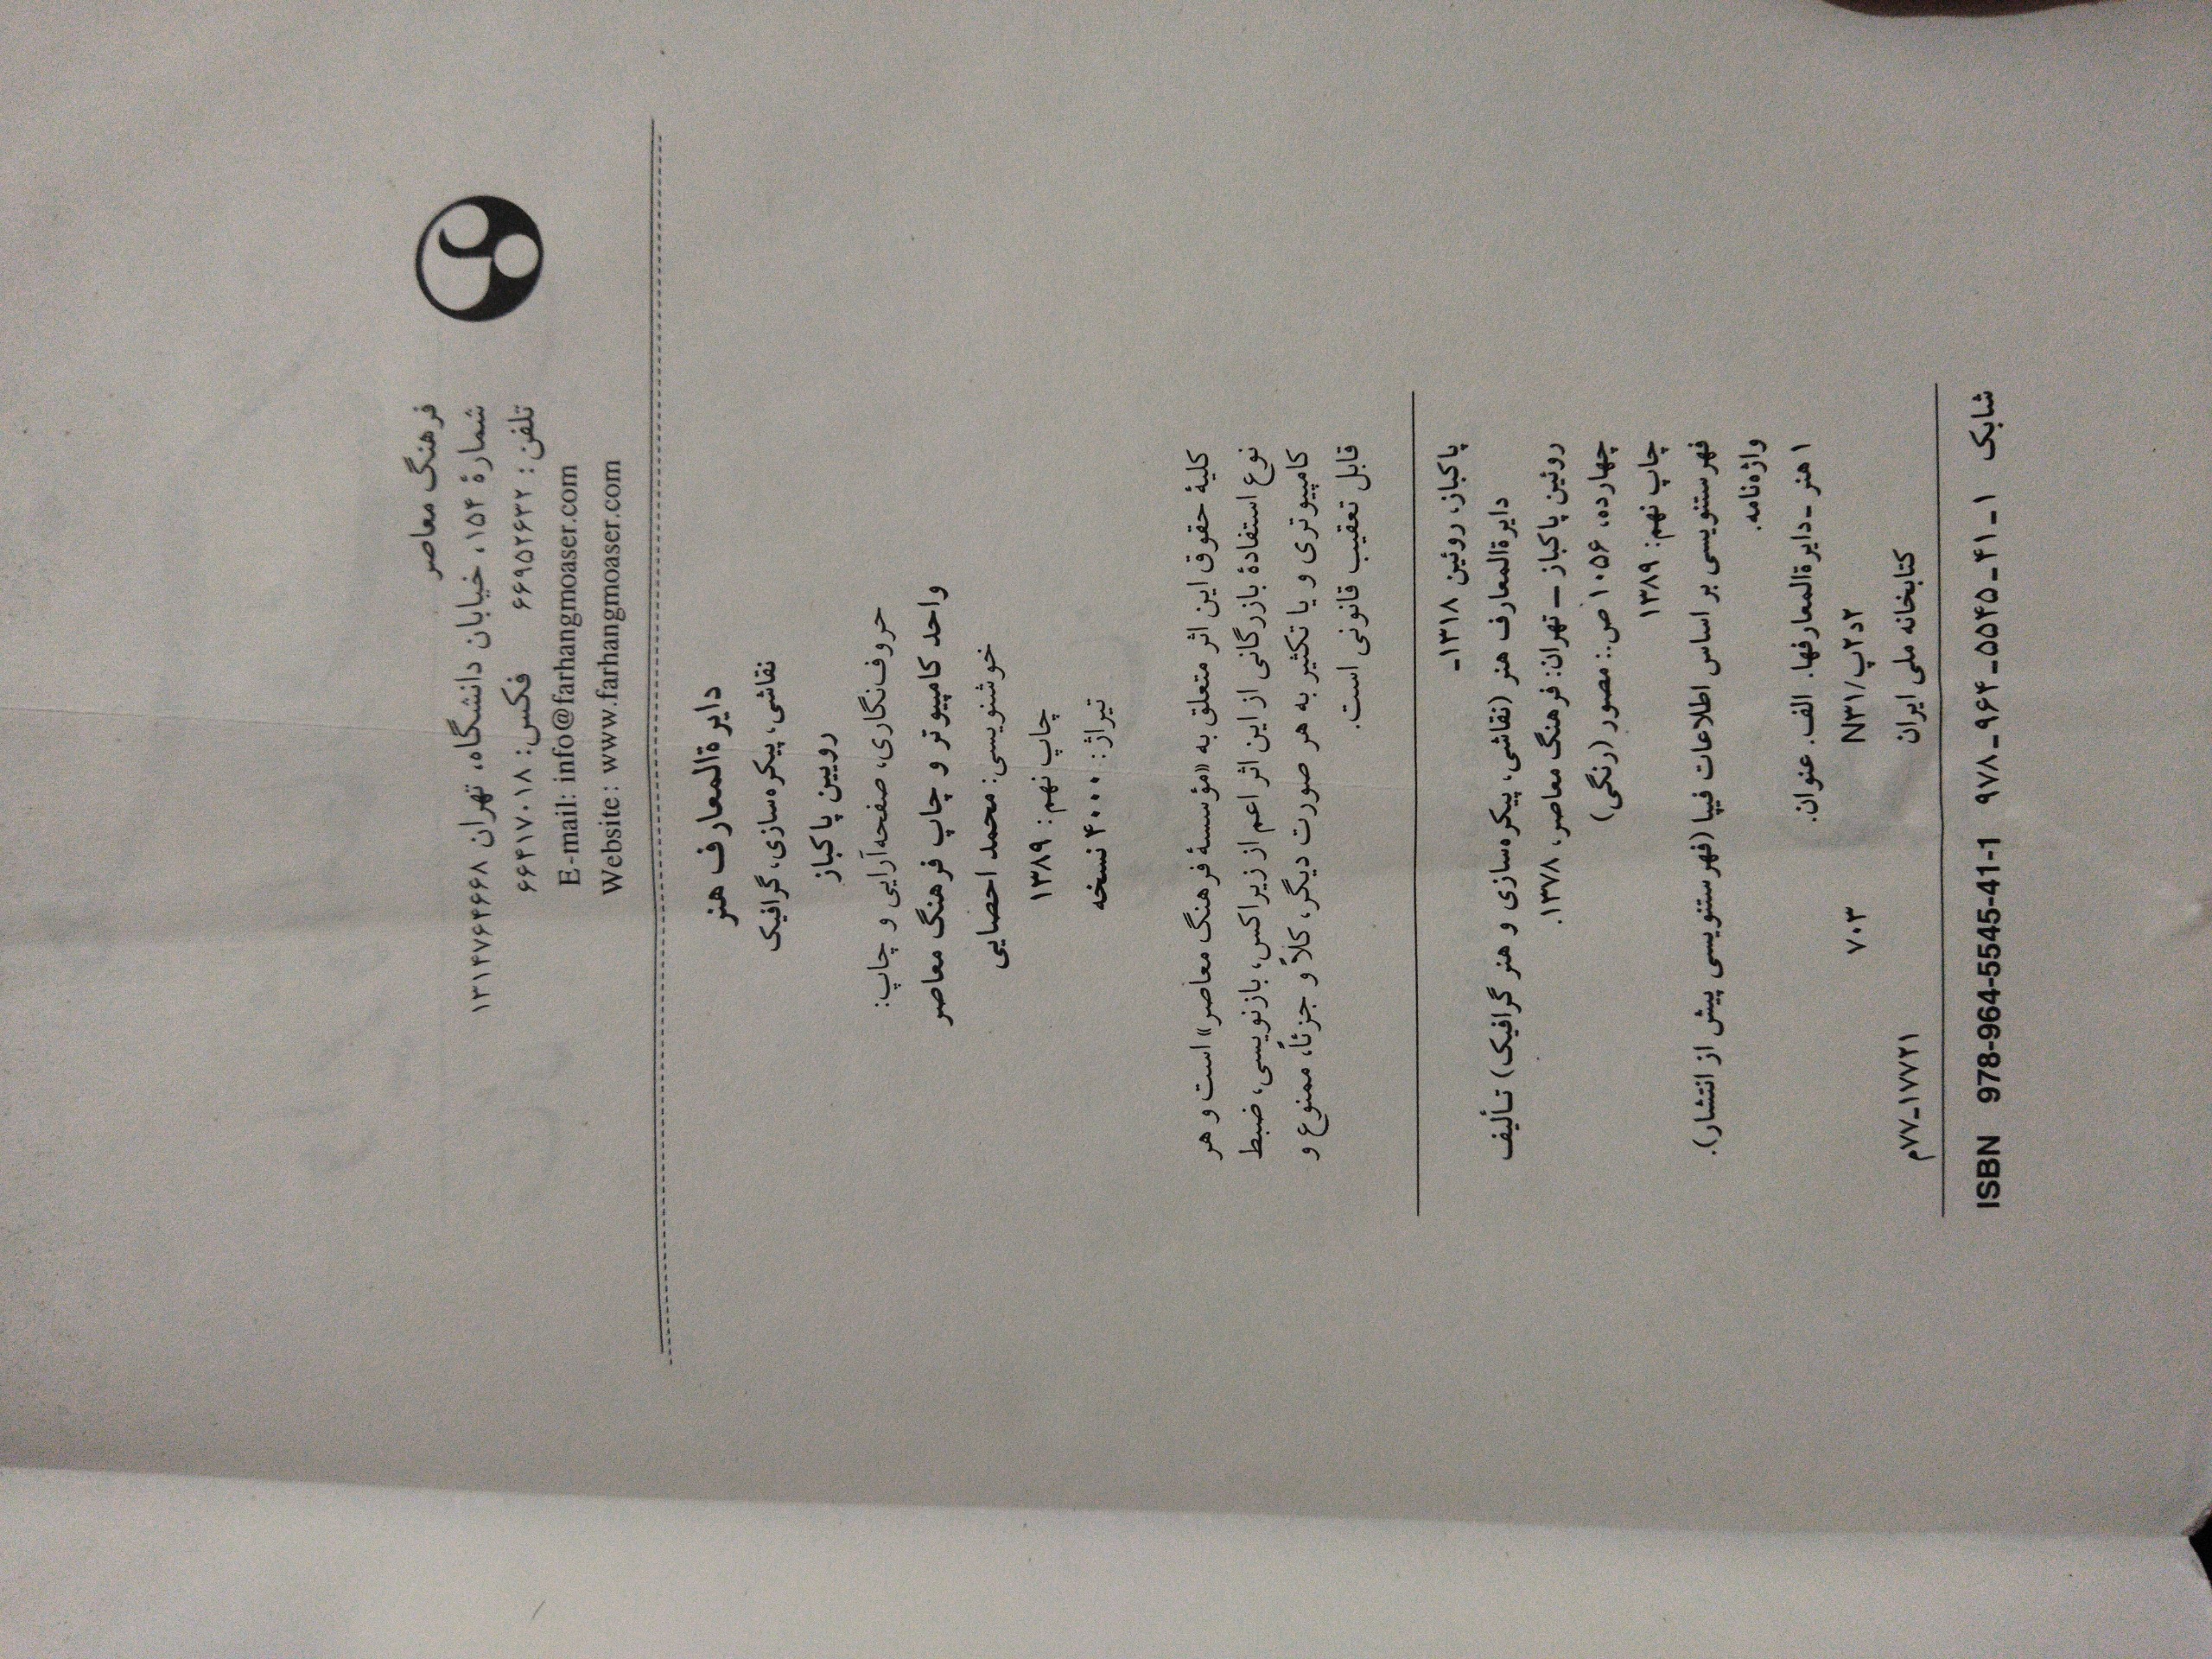 فرهنگ معاصر
شمارهٔ ۱۵۴، خیابان دانشگاه، تهران ۱۳۱۴۷۶۴۶۶۸
تلفن: ۶۶۹۵۲۶۳۲ فکس: ۶۶۴۱۷۰۱۸
E-mail: info@farhangmoaser.com
Website: www.farhangmoaser.com
دایرةالمعارف هنر
نقاشی، پیکره‌سازی، گرافیک
رویین پاکباز
حروف‌نگاری، صفحه‌آرایی و چاپ:
واحد کامپیوتر و چاپ فرهنگ معاصر
خوشنویسی: محمد احصایی
چاپ نهم: ۱۳۸۹
تیراژ: ۴۰۰۰ نسخه
کلیهٔ حقوق این اثر متعلق به «مؤسسهٔ فرهنگ معاصر» است و هر
نوع استفادهٔ بازرگانی از این اثر اعم از زیراکس، بازنویسی، ضبط
کامپیوتری و یا تکثیر به هر صورت دیگر، کلاً و جزئاً، ممنوع و
قابل تعقیب قانونی است.
پاکباز، روئین ۱۳۱۸-
دایرةالمعارف هنر (نقاشی، پیکره‌سازی و هنر گرافیک) تألیف
روئین پاکباز – تهران: فرهنگ معاصر، ۱۳۷۸.
چهارده، ۱۰۵۶ ص.: مصور (رنگی)
چاپ نهم: ۱۳۸۹
فهرستنویسی بر اساس اطلاعات فیپا (فهرستنویسی پیش از انتشار).
واژه‌نامه.
۱ هنر - دایرةالمعارفها. الف. عنوان.
۲د۲پ/N۳۱ ۷۰۳
کتابخانه ملی ایران ۱۷۷۲۱-۷۷م
شابک ۱-۴۱-۵۵۴۵-۹۶۴-۹۷۸ ISBN 978-964-5545-41-1